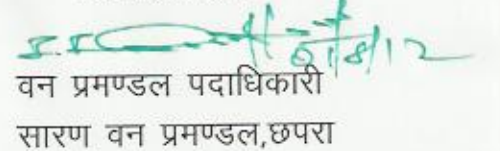 01/8/12
वन प्रमण्डल पदाधिकारी
सारण वन प्रमण्डल,छपरा